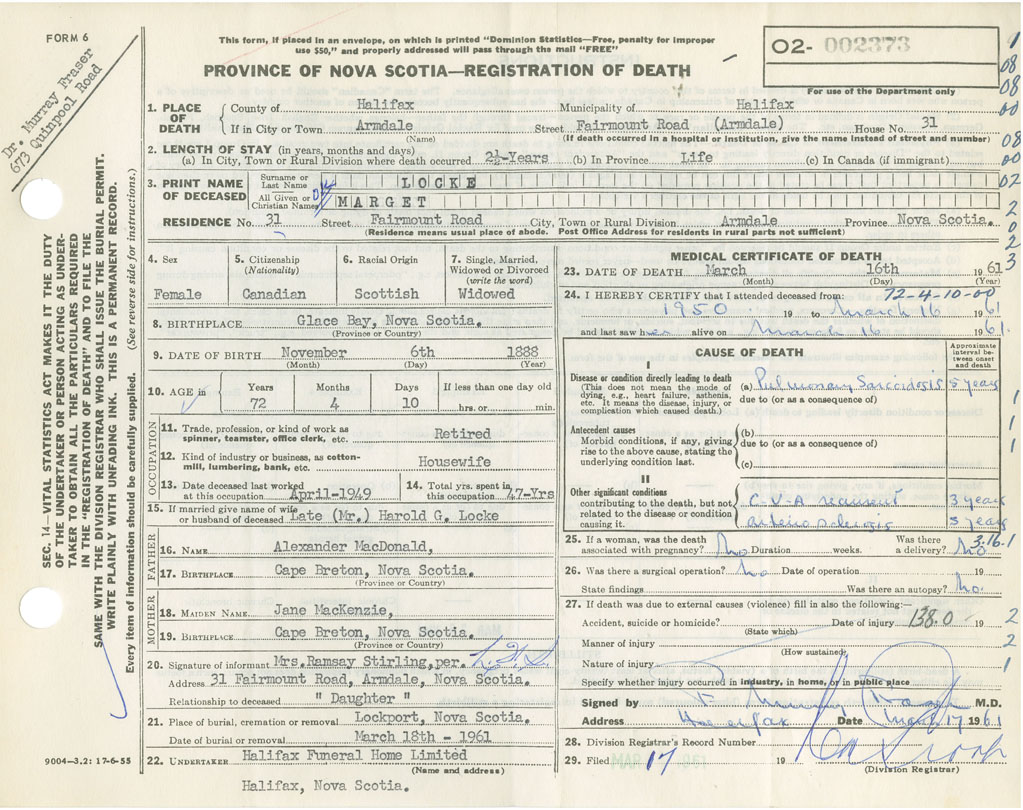 FORM 6
Dr. Murray Fraser
673 Quinpool Road
This form, if placed in an envelope, on which is printed "Dominion Statistics—Free, penalty for improper
use $50," and properly addressed will pass through the mail "FREE"
PROVINCE OF NOVA SCOTIA—REGISTRATION OF DEATH
O2- 002373
For use of the Department only
SEC. 14—VITAL STATISTICS ACT MAKES IT THE DUTY
OF THE UNDERTAKER OR PERSON ACTING AS UNDER-
TAKER TO OBTAIN ALL THE PARTICULARS REQUIRED
IN THE "REGISTRATION OF DEATH" AND TO FILE THE
SAME WITH THE DIVISION REGISTRAR WHO SHALL ISSUE THE BURIAL PERMIT.
WRITE PLAINLY WITH UNFADING INK. THIS IS A PERMANENT RECORD.
Every item of information should be carefully supplied. (See reverse side for instructions.)
1. PLACE OF DEATH
County of Halifax Municipality of Halifax
If in City or Town Armdale Street Fairmount Road (Armdale) House No. 31
(Name) (If death occurred in a hospital or institution, give the name instead of street and number)
2. LENGTH OF STAY (in years, months and days)
(a) In City, Town or Rural Division where death occurred 2½-Years (b) In Province Life (c) In Canada (if immigrant)
3. PRINT NAME OF DECEASED
Surname or Last Name LOCKE
All Given or Christian Names MARGET
RESIDENCE No. 31 Street Fairmount Road City, Town or Rural Division Armdale Province Nova Scotia.
(Residence means usual place of abode. Post Office Address for residents in rural parts not sufficient)
4. Sex
Female
5. Citizenship (Nationality)
Canadian
6. Racial Origin
Scottish
7. Single, Married, Widowed or Divorced (write the word)
Widowed
8. BIRTHPLACE Glace Bay, Nova Scotia.
(Province or Country)
9. DATE OF BIRTH November 6th 1888
(Month) (Day) (Year)
10. AGE in Years Months Days If less than one day old
72 4 10 hrs. or min.
OCCUPATION
11. Trade, profession, or kind of work as
spinner, teamster, office clerk, etc. Retired
12. Kind of industry or business, as cotton-
mill, lumbering, bank, etc. Housewife
13. Date deceased last worked
at this occupation April-1949
14. Total yrs. spent in
this occupation 47-Yrs
15. If married give name of wife
or husband of deceased Late (Mr.) Harold G. Locke
FATHER
16. NAME Alexander MacDonald,
17. BIRTHPLACE Cape Breton, Nova Scotia.
(Province or Country)
MOTHER
18. MAIDEN NAME Jane MacKenzie,
19. BIRTHPLACE Cape Breton, Nova Scotia.
(Province or Country)
20. Signature of informant Mrs. Ramsay Stirling, per.
Address 31 Fairmount Road, Armdale, Nova Scotia.
Relationship to deceased " Daughter "
21. Place of burial, cremation or removal Lockport, Nova Scotia.
Date of burial or removal March 18th - 1961
22. UNDERTAKER Halifax Funeral Home Limited
(Name and address)
Halifax, Nova Scotia.
9004—3.2: 17-6-55
MEDICAL CERTIFICATE OF DEATH
23. DATE OF DEATH March 16th 1961
(Month) (Day) (Year)
24. I HEREBY CERTIFY that I attended deceased from: 72-4-10-00
1950 19 to March 16 1961
and last saw her alive on March 16 1961.
CAUSE OF DEATH
Approximate interval between onset and death
I
Disease or condition directly leading to death (a) Pulmonary Sarcoidosis 5 years
(This does not mean the mode of
dying, e.g., heart failure, asthenia,
etc. It means the disease, injury, or
complication which caused death.)
due to (or as a consequence of)
Antecedent causes
Morbid conditions, if any, giving
rise to the above cause, stating the
underlying condition last.
(b)
due to (or as a consequence of)
(c)
II
Other significant conditions
contributing to the death, but not
related to the disease or condition
causing it.
C-V-A recurrent 3 years
arteriosclerosis 5 years
3.16.1
25. If a woman, was the death
associated with pregnancy? No Duration weeks. Was there
a delivery? No
26. Was there a surgical operation? No Date of operation 19
State findings Was there an autopsy? No.
27. If death was due to external causes (violence) fill in also the following:—
Accident, suicide or homicide? Date of injury 138.0 19
(State which)
Manner of injury
(How sustained)
Nature of injury
Specify whether injury occurred in industry, in home, or in public place
Signed by M.D.
Address Halifax Date March 17 1961
28. Division Registrar's Record Number
29. Filed 17 19
(Division Registrar)
1
08
08
00
08
00
02
2
0
2
3
1
1
1
2
2
1